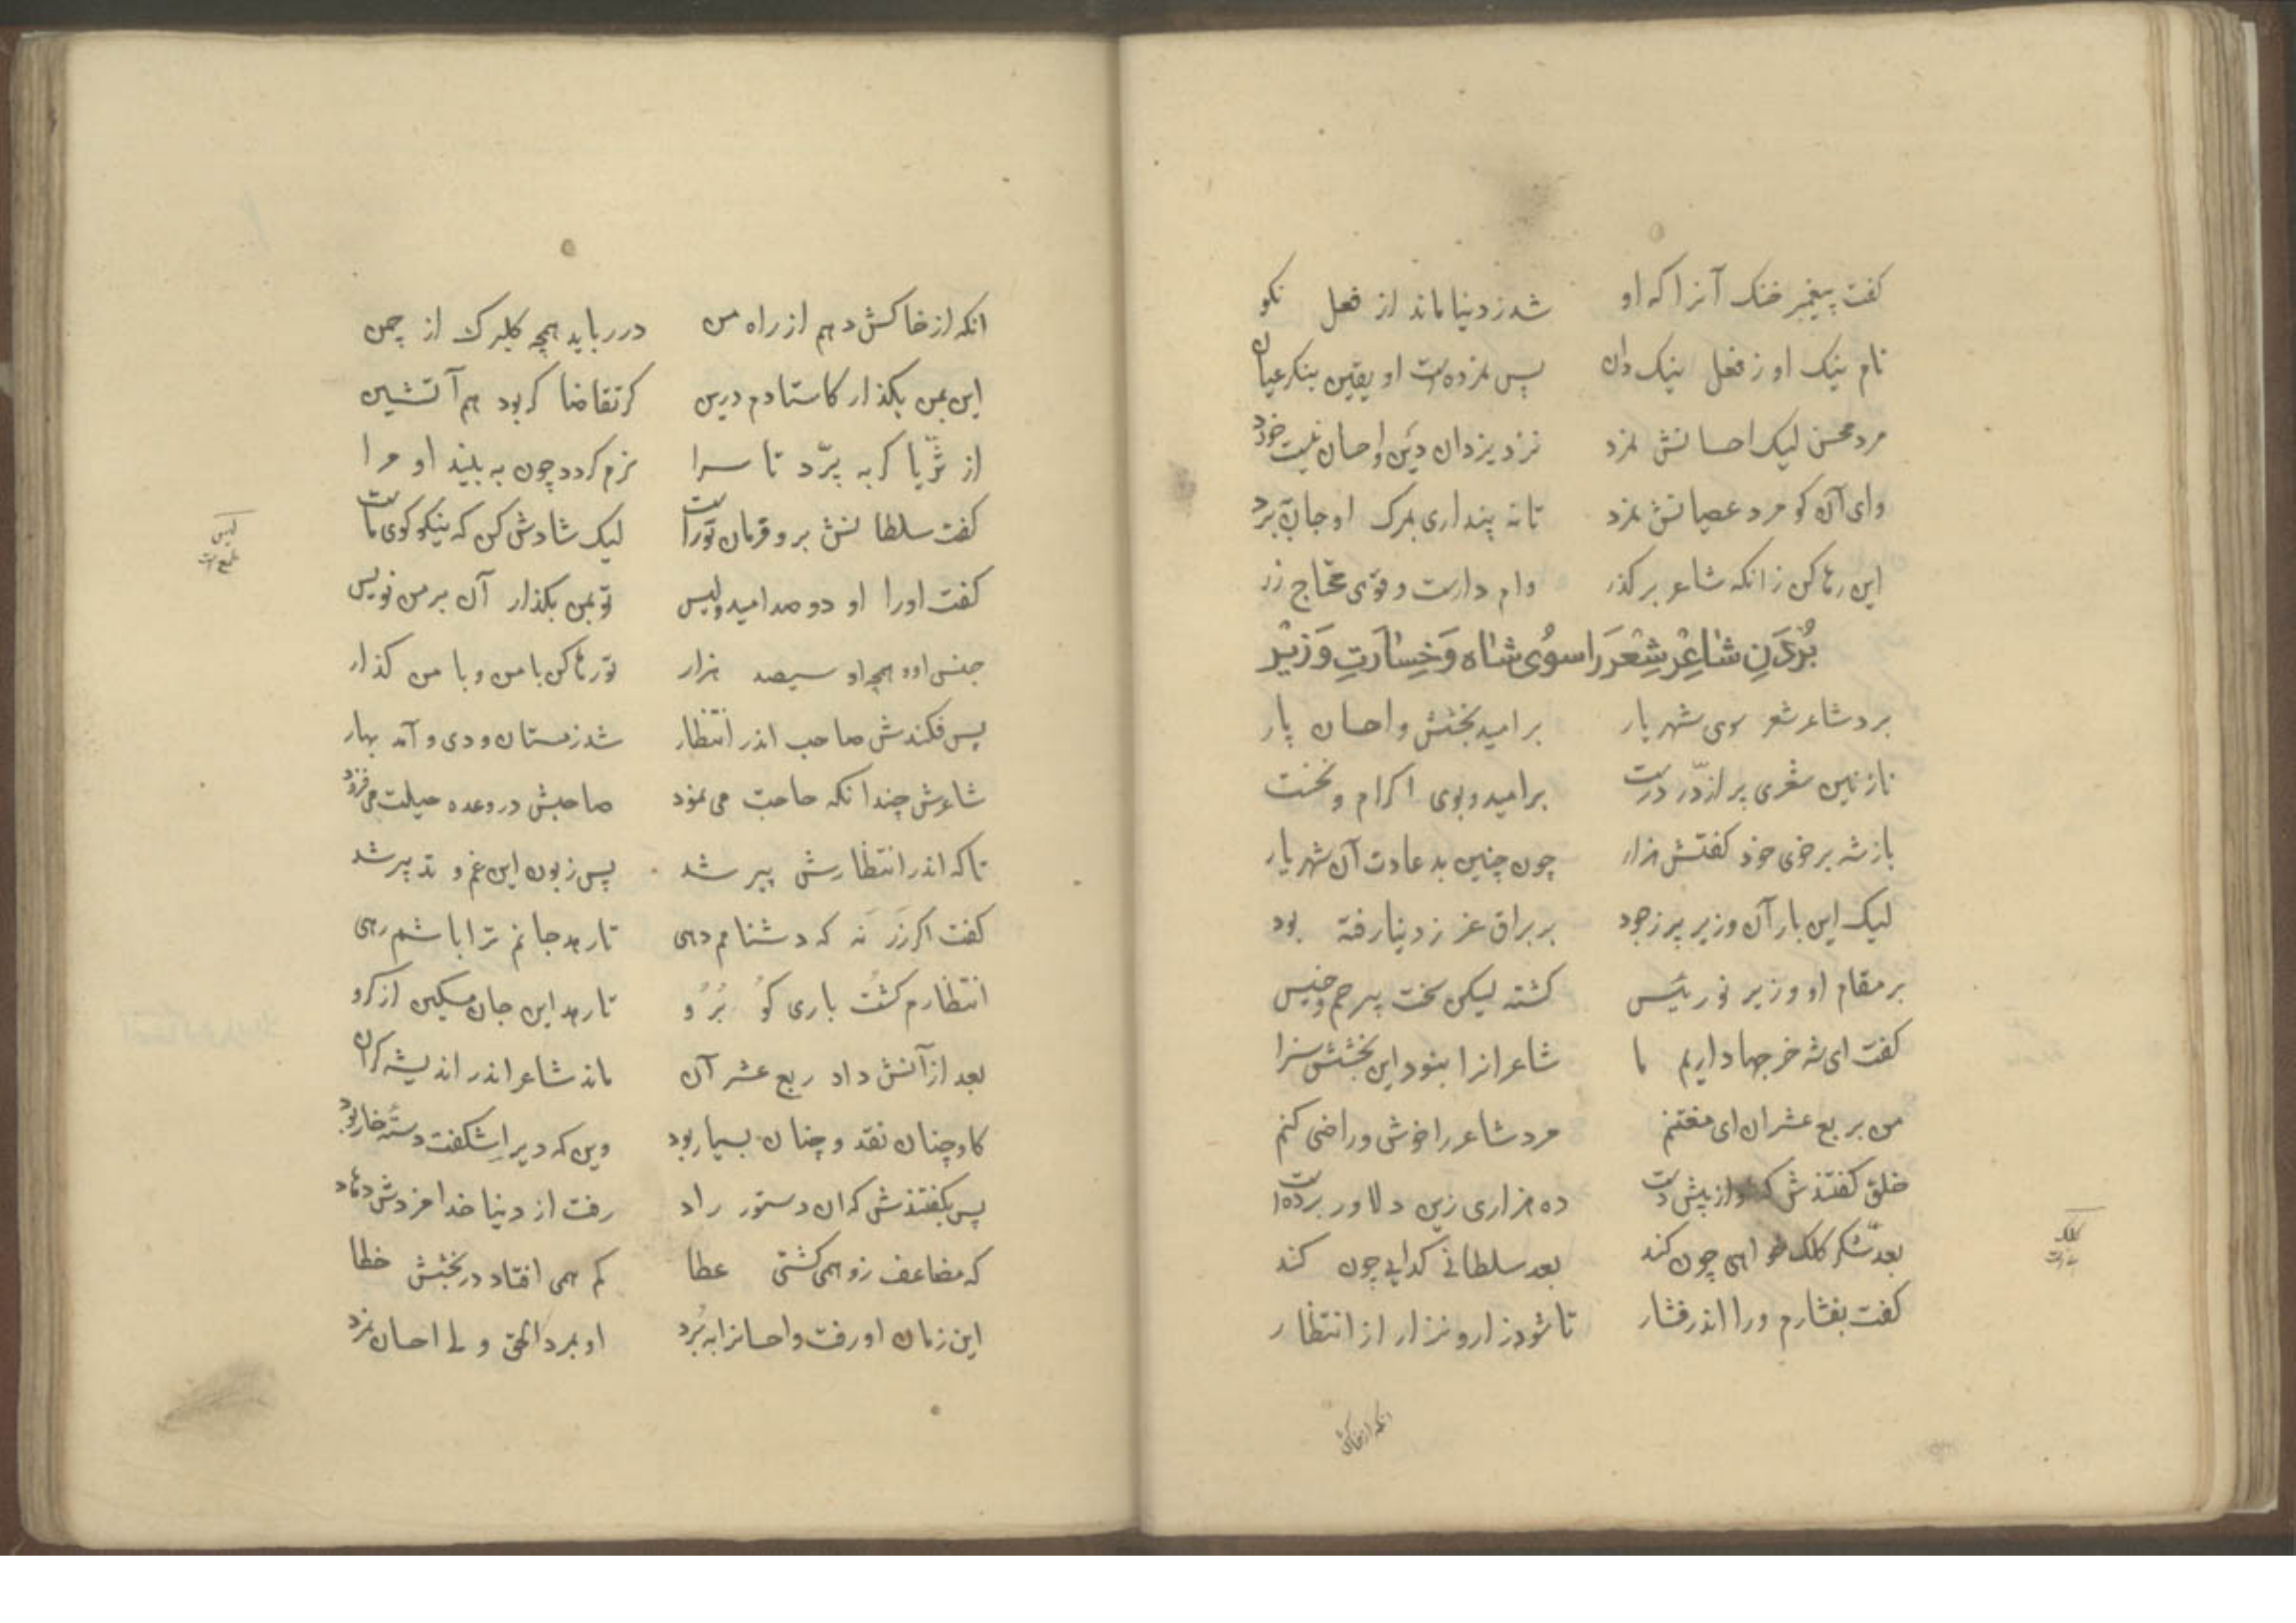 کفت پیغمبر خنک آنرا که او شد ز دنیا ماند از فعل نکو
نام نیک او ز فعل نیک دان پس نمزده‌است او یقین بنکر عیان
مرد محسن لیک احسانش نمرد نزد یزدان دین و احسان نیست خورد
وای آن کو مرد عصیانش نمرد تا نه پنداری بمرک او جان ببرد
این رها کن زانکه شاعر بر کذر وام دارست و قوی محتاج زر
بُردَنِ شاعِرْ شِعْرَ را سوُی شاه وَ خِسارَتِ وَزیْر
برد شاعر شعر سوی شهریار بر امید بخشش و احسان پار
نازنین شعری پر از دُرّ درست بر امید و بوی اکرام و نخست
باز شه بر خوی خود کفتش هزار چون چنین بد عادت آن شهریار
لیک این بار آن وزیر پر ز جود بر براق عز ز دنیا رفته بود
بر مقام او وزیر نو رئیس کشته لیکن سخت بیرحم و خسیس
کفت ای شه خرجها داریم ما شاعرانرا نبود این بخشش سزا
من بربع عشر ان ای مغتنم مرد شاعر را خوش و راضی کنم
خلق کفتندش که او از پیش دست ده هزاری زین دلاور برده است
بعد شکّر کلک خواهی چون کند بعد سلطانی کدایی چون کند
کفت بفشارم ورا اندر فشار تا شود زار و نزار از انتظار
کلک
انکه از خاکش
انکه از خاکش دهم از راه من در رباید همچو کلبرک از چمن
این بمن بکذار کاستادم درین کر تقاضا کر بود هم آتشین
از ثُریّا کر به پرّد تا سرا نرم کردد چون به بیند او مرا
کفت سلطانش برو فرمان تراست لیک شادش کن که نیکو کوی ماست
کفت او را او دو صد امید ولیس تو بمن بکذار آن بر من نویس
جنس او و همچو او سیصد هزار تو رها کن با من و با من کذار
پس فکندش صاحب اندر انتظار شد زمستان و دی و آمد بهار
شاعرش چندانکه حاجت می نمود صاحبش در وعده حیلت می فزود
تا که اندر انتظارش پیر شد پس زبون این غم و تدبیر شد
کفت اکر زَر نَه که دشنامم دهی تا رهد جانم ترا باشم رهی
انتظارم کشُت باری کوُ بُرُو تا رهد این جان مسکین از کرو
بعد از آنش داد ربع عشر آن ماند شاعر اندر اندیشه کران
کاو چنان نقد و چنان بسیار بود وین که دیر اشکفت دستهٔ خار بود
پس بکفتندش که ان دستور راد رفت از دنیا خدا مزدش دهاد
که مضاعف زو همی کشتی عطا کم همی افتاد در بخشش خطا
این زمان او رفت و احسانرا به بُرد او نمرد الحق ولی احسان نمرد
لیس